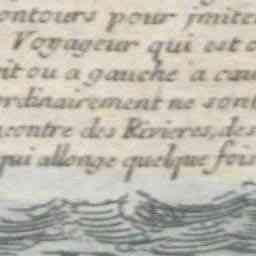 ontours pour imiter
Voyageur qui est o
it ou a gauche a cau
ordinairement ne sont
contre des Rivieres, des
qui allonge quelque fois